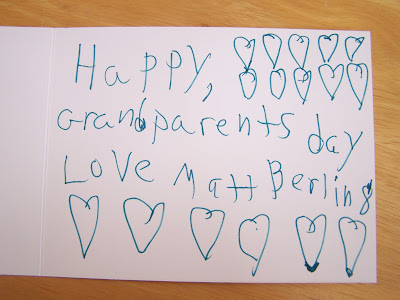 Happy,
grandparents day
Love Matt Berling